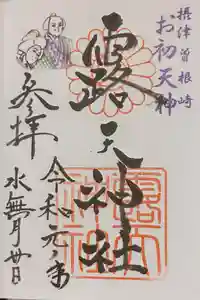 摂津曽根崎
お初天神
露天神社
令和元ノ年
参拝
水無月廿日
露天神社